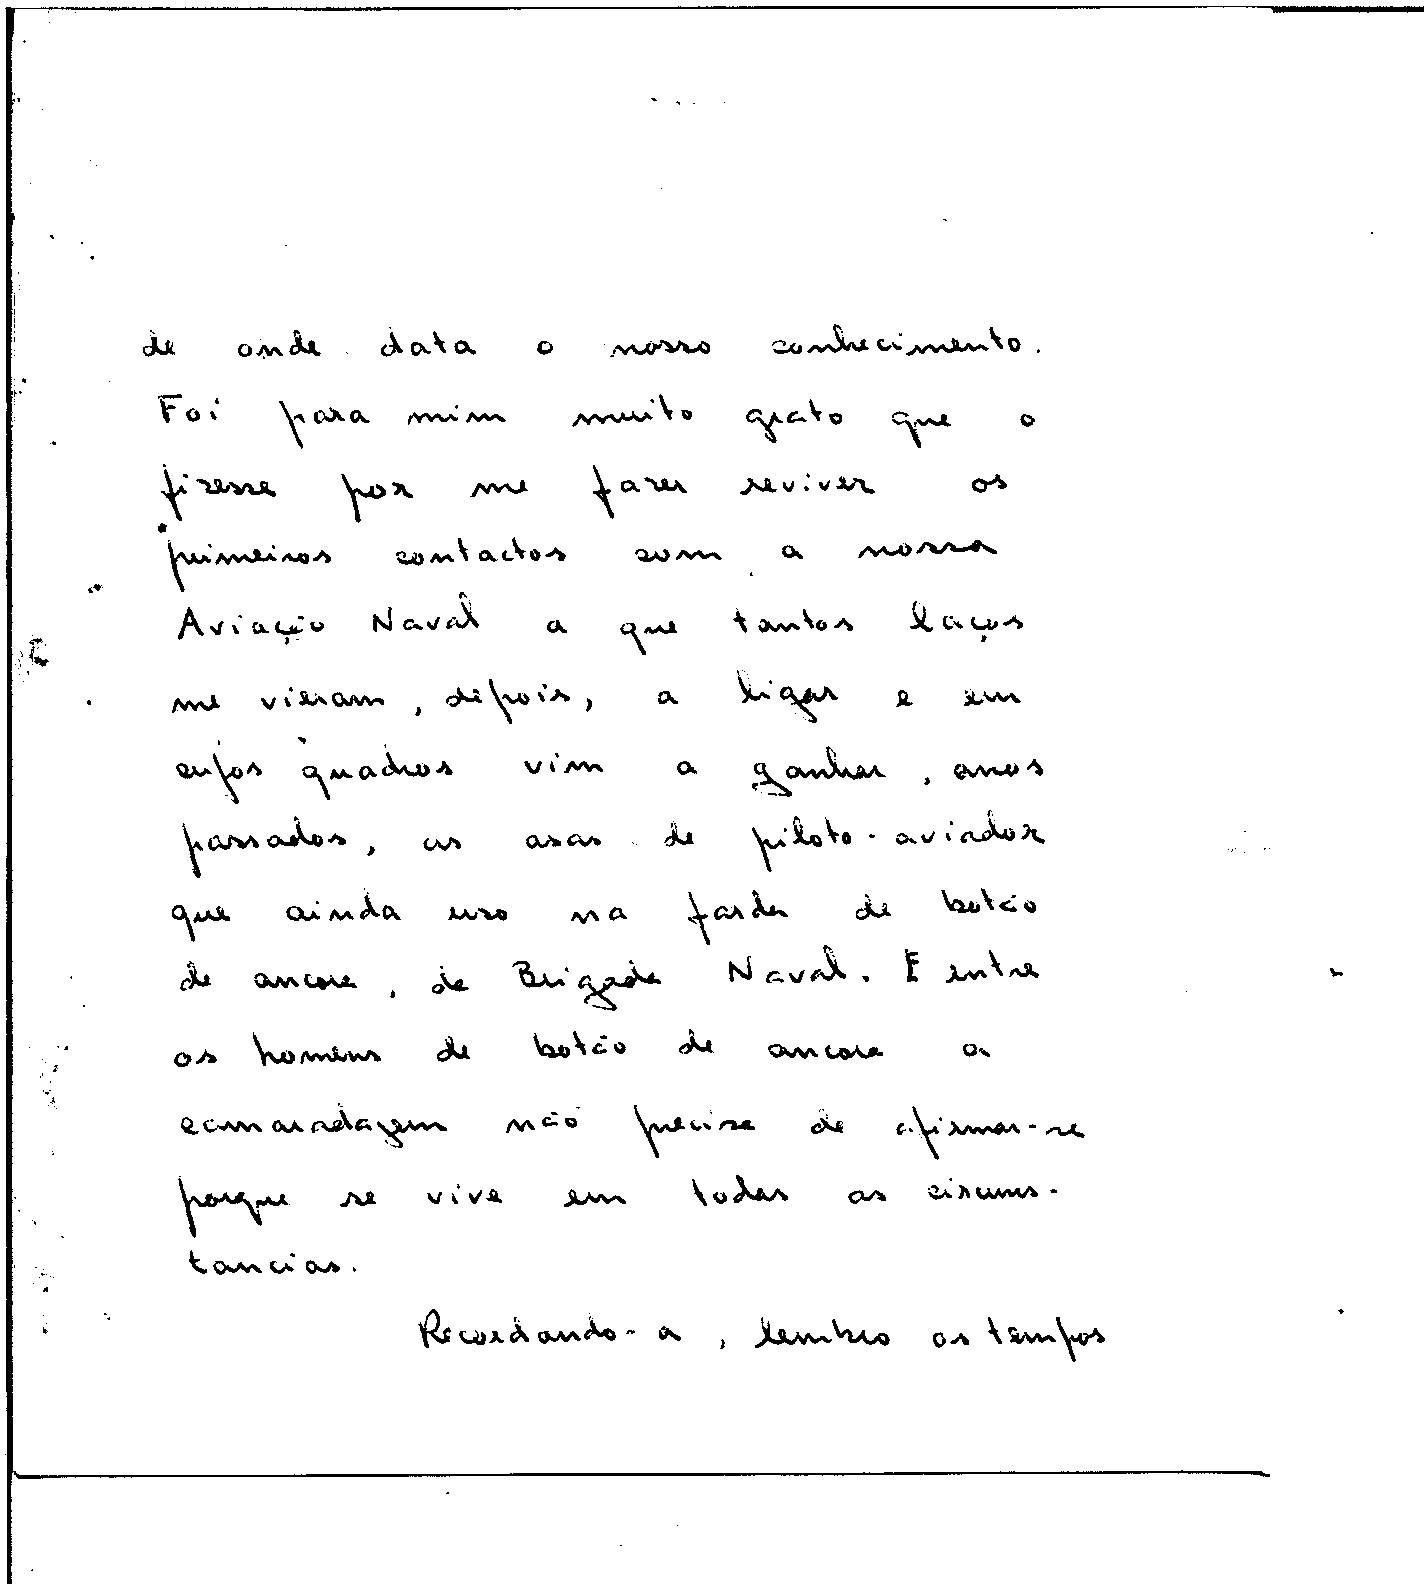 de onde data o nosso conhecimento.
Foi para mim muito grato que o
fizesse por me fazer reviver os
primeiros contactos com a nossa
Aviação Naval a que tantos laços
me vieram, depois, a ligar e em
cujos quadros vim a ganhar, anos
passados, as asas de piloto-aviador
que ainda uso na farda de botão
de ancora, da Brigada Naval. E entre
os homens de botão de ancora a
camaradagem não precisa de afirmar-se
porque se vive em todas as circuns-
tancias.
Recordando-a, lembro os tempos